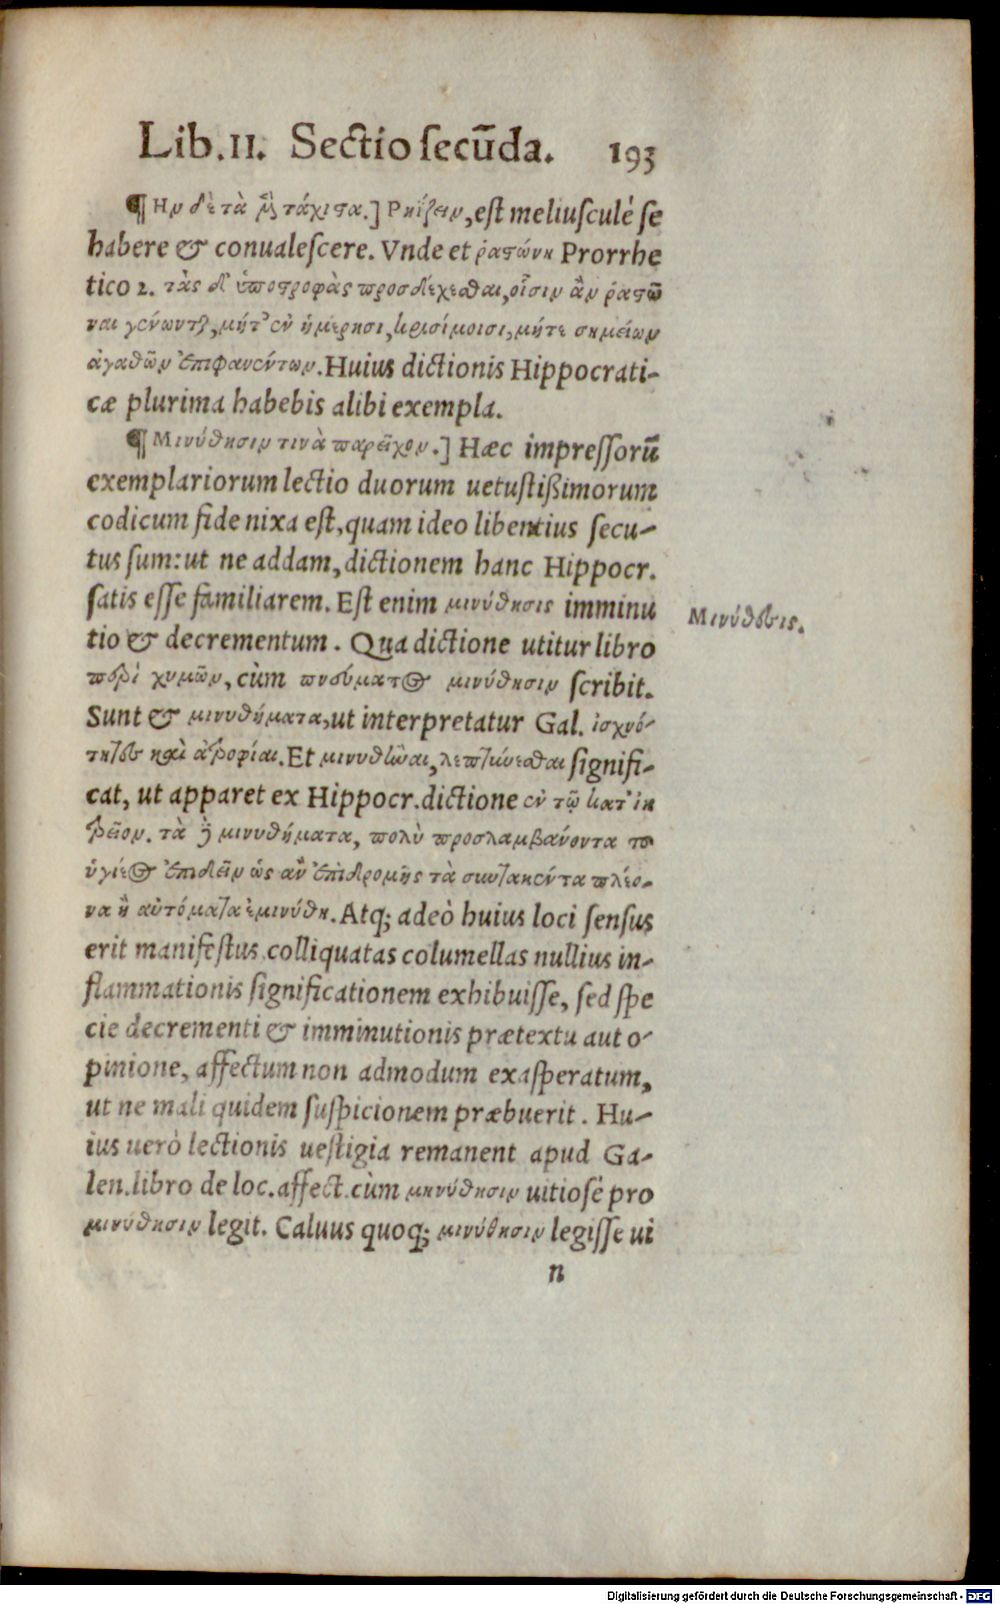 Lib.II. Sectio secūda. 193
¶ Ην δὲ τὰ ῥᾷ τάχιστα.] Ρηΐζειν, est meliusculè se
habere & conualescere. Vnde et ῥαστώνη Prorrhe
tico 2. τὰς δ' ὑποστροφὰς προσδέχεσθαι, οἷσιν ἂν ῥαστῶ
ναι γένωνται, μήτ' ἐν ἡμέρῃσι, κρισίμοισι, μήτε σημείων
ἀγαθῶν ἐπιφανέντων. Huius dictionis Hippocrati-
cæ plurima habebis alibi exempla.
¶ Μινύθησιν τινὰ παρεῖχον.] Hæc impressorū
exemplariorum lectio duorum uetustißimorum
codicum fide nixa est, quam ideo libentius secu-
tus sum: ut ne addam, dictionem hanc Hippocr.
satis esse familiarem. Est enim μινύθησις imminu
tio & decrementum. Qua dictione utitur libro
περὶ χυμῶν, cùm πνεύματος μινύθησιν scribit.
Sunt & μινυθήματα, ut interpretatur Gal. ἰσχνό-
τητες καὶ ἀτροφίαι. Et μινυθῶσαι, λεπτύνεσθαι signifi-
cat, ut apparet ex Hippocr. dictione ἐν τῷ κατ' ἰη
τρεῖον. τὰ δὲ μινυθήματα, πολὺ προσλαμβάνοντα τοῦ
ὑγιέος ἐπιδεῖν ὡς ἂν ἐπιδρομῆς τὰ συντακέντα πλέο-
να ἢ αὐτόματα ἐμινύθη. Atq; adeò huius loci sensus
erit manifestus colliquatas columellas nullius in-
flammationis significationem exhibuisse, sed spe
cie decrementi & imminutionis prætextu aut o-
pinione, affectum non admodum exasperatum,
ut ne mali quidem suspicionem præbuerit. Hu-
ius uerò lectionis uestigia remanent apud Ga-
len. libro de loc. affect. cùm μηνύθησιν uitiosè pro
μινύθησιν legit. Caluus quoq; μινύθησιν legisse ui
n
Μινύθησις.
Digitalisierung gefördert durch die Deutsche Forschungsgemeinschaft - DFG